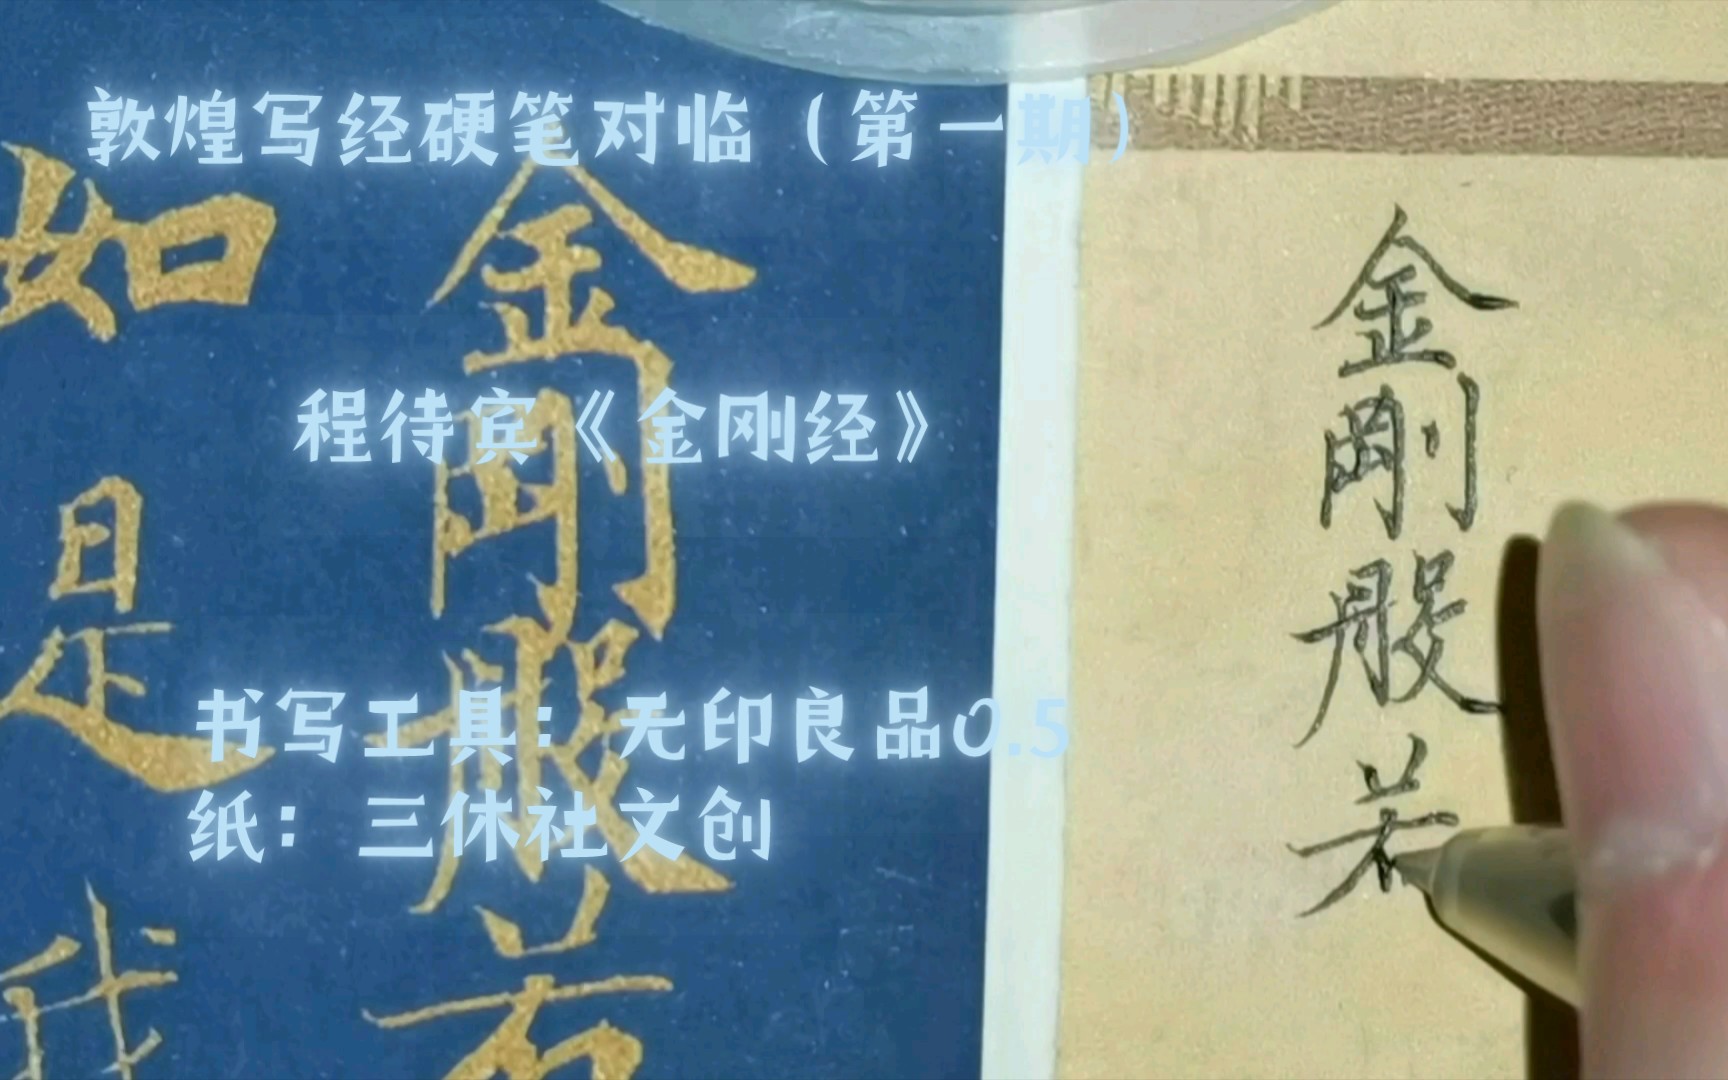 敦煌写经硬笔对临（第一期）
程待宾《金刚经》
书写工具：无印良品0.5
纸：三休社文创
金剛般若
如是我
金剛般若